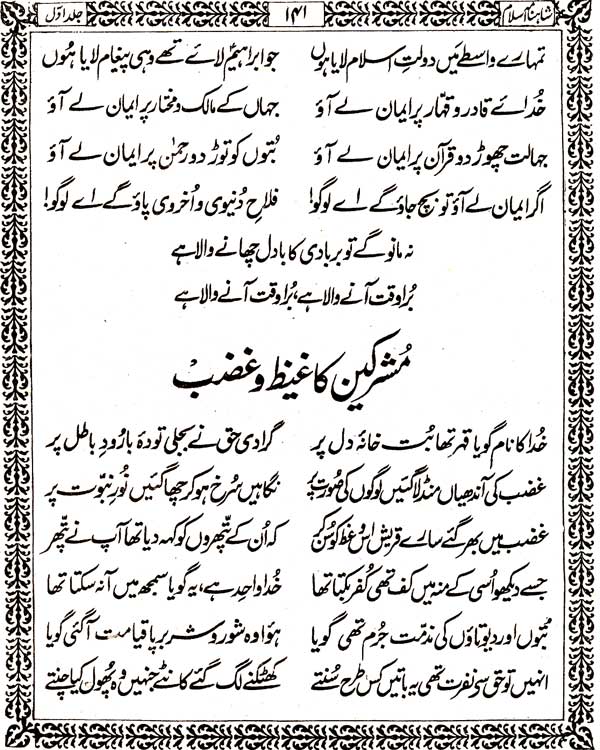 شاہنامہ اسلام ۱۴۱ جلد اوّل
تمہارے واسطے میں دولتِ اسلام لایا ہوں جو ابراہیمؑ لائے تھے وہی پیغام لایا ہوں
خُدائے قادر و قہّار پر ایمان لے آؤ جہاں کے مالک و مختار پر ایمان لے آؤ
جہالت چھوڑ دو قرآن پر ایمان لے آؤ بُتوں کو توڑ دو رحمٰن پر ایمان لے آؤ
اگر ایمان لے آؤ تو بچ جاؤ گے اے لوگو! فلاحِ دُنیوی و اُخروی پاؤ گے اے لوگو!
نہ مانو گے تو بربادی کا بادل چھانے والا ہے
بُرا وقت آنے والا ہے، بُرا وقت آنے والا ہے
مُشرکین کا غیظ و غضب
خُدا کا نام گویا قہر تھا بُت خانۂ دل پر گرا دی حق نے بجلی تودۂ بارُودِ باطل پر
غضب کی آندھیاں منڈلا گئیں لوگوں کی صُورت پر نگاہیں سُرخ ہو کر چھا گئیں نُورِ نبوّت پر
غضب میں بھر گئے سارے قریش اس وعظ کو سُن کر کہ اُن کے پتّھروں کو کہہ دیا تھا آپ نے پتّھر
جسے دیکھو اُسی کے منہ میں کف تھی کُفر بکتا تھا خُدا واحد ہے، یہ گویا سمجھ میں آ نہ سکتا تھا
بُتوں اور دیوتاؤں کی مذمّت جُرم تھی گویا ہؤا وہ شور و شر برپا قیامت آ گئی گویا
انہیں تو حق سی نفرت تھی یہ باتیں کس طرح سُنتے کھٹکنے لگ گئے کانٹے جنہیں وہ پھُول کیا چنتے